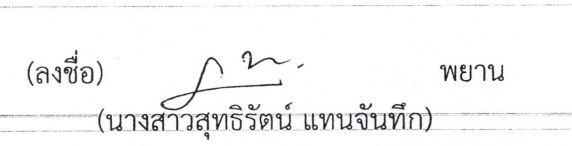 (ลงชื่อ) พยาน
(นางสาวสุทธิรัตน์ แทนจันทึก)